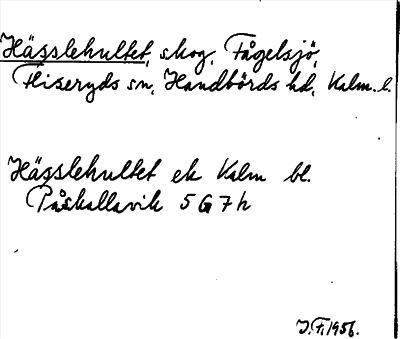 Hässlehultet, skog, Fågelsjö,
Fliseryds sn, Handbörds hd, Kalm. l.
Hässlehultet ek Kalm bl.
Påskallavik 5 G 7 h
J.F. 1956.